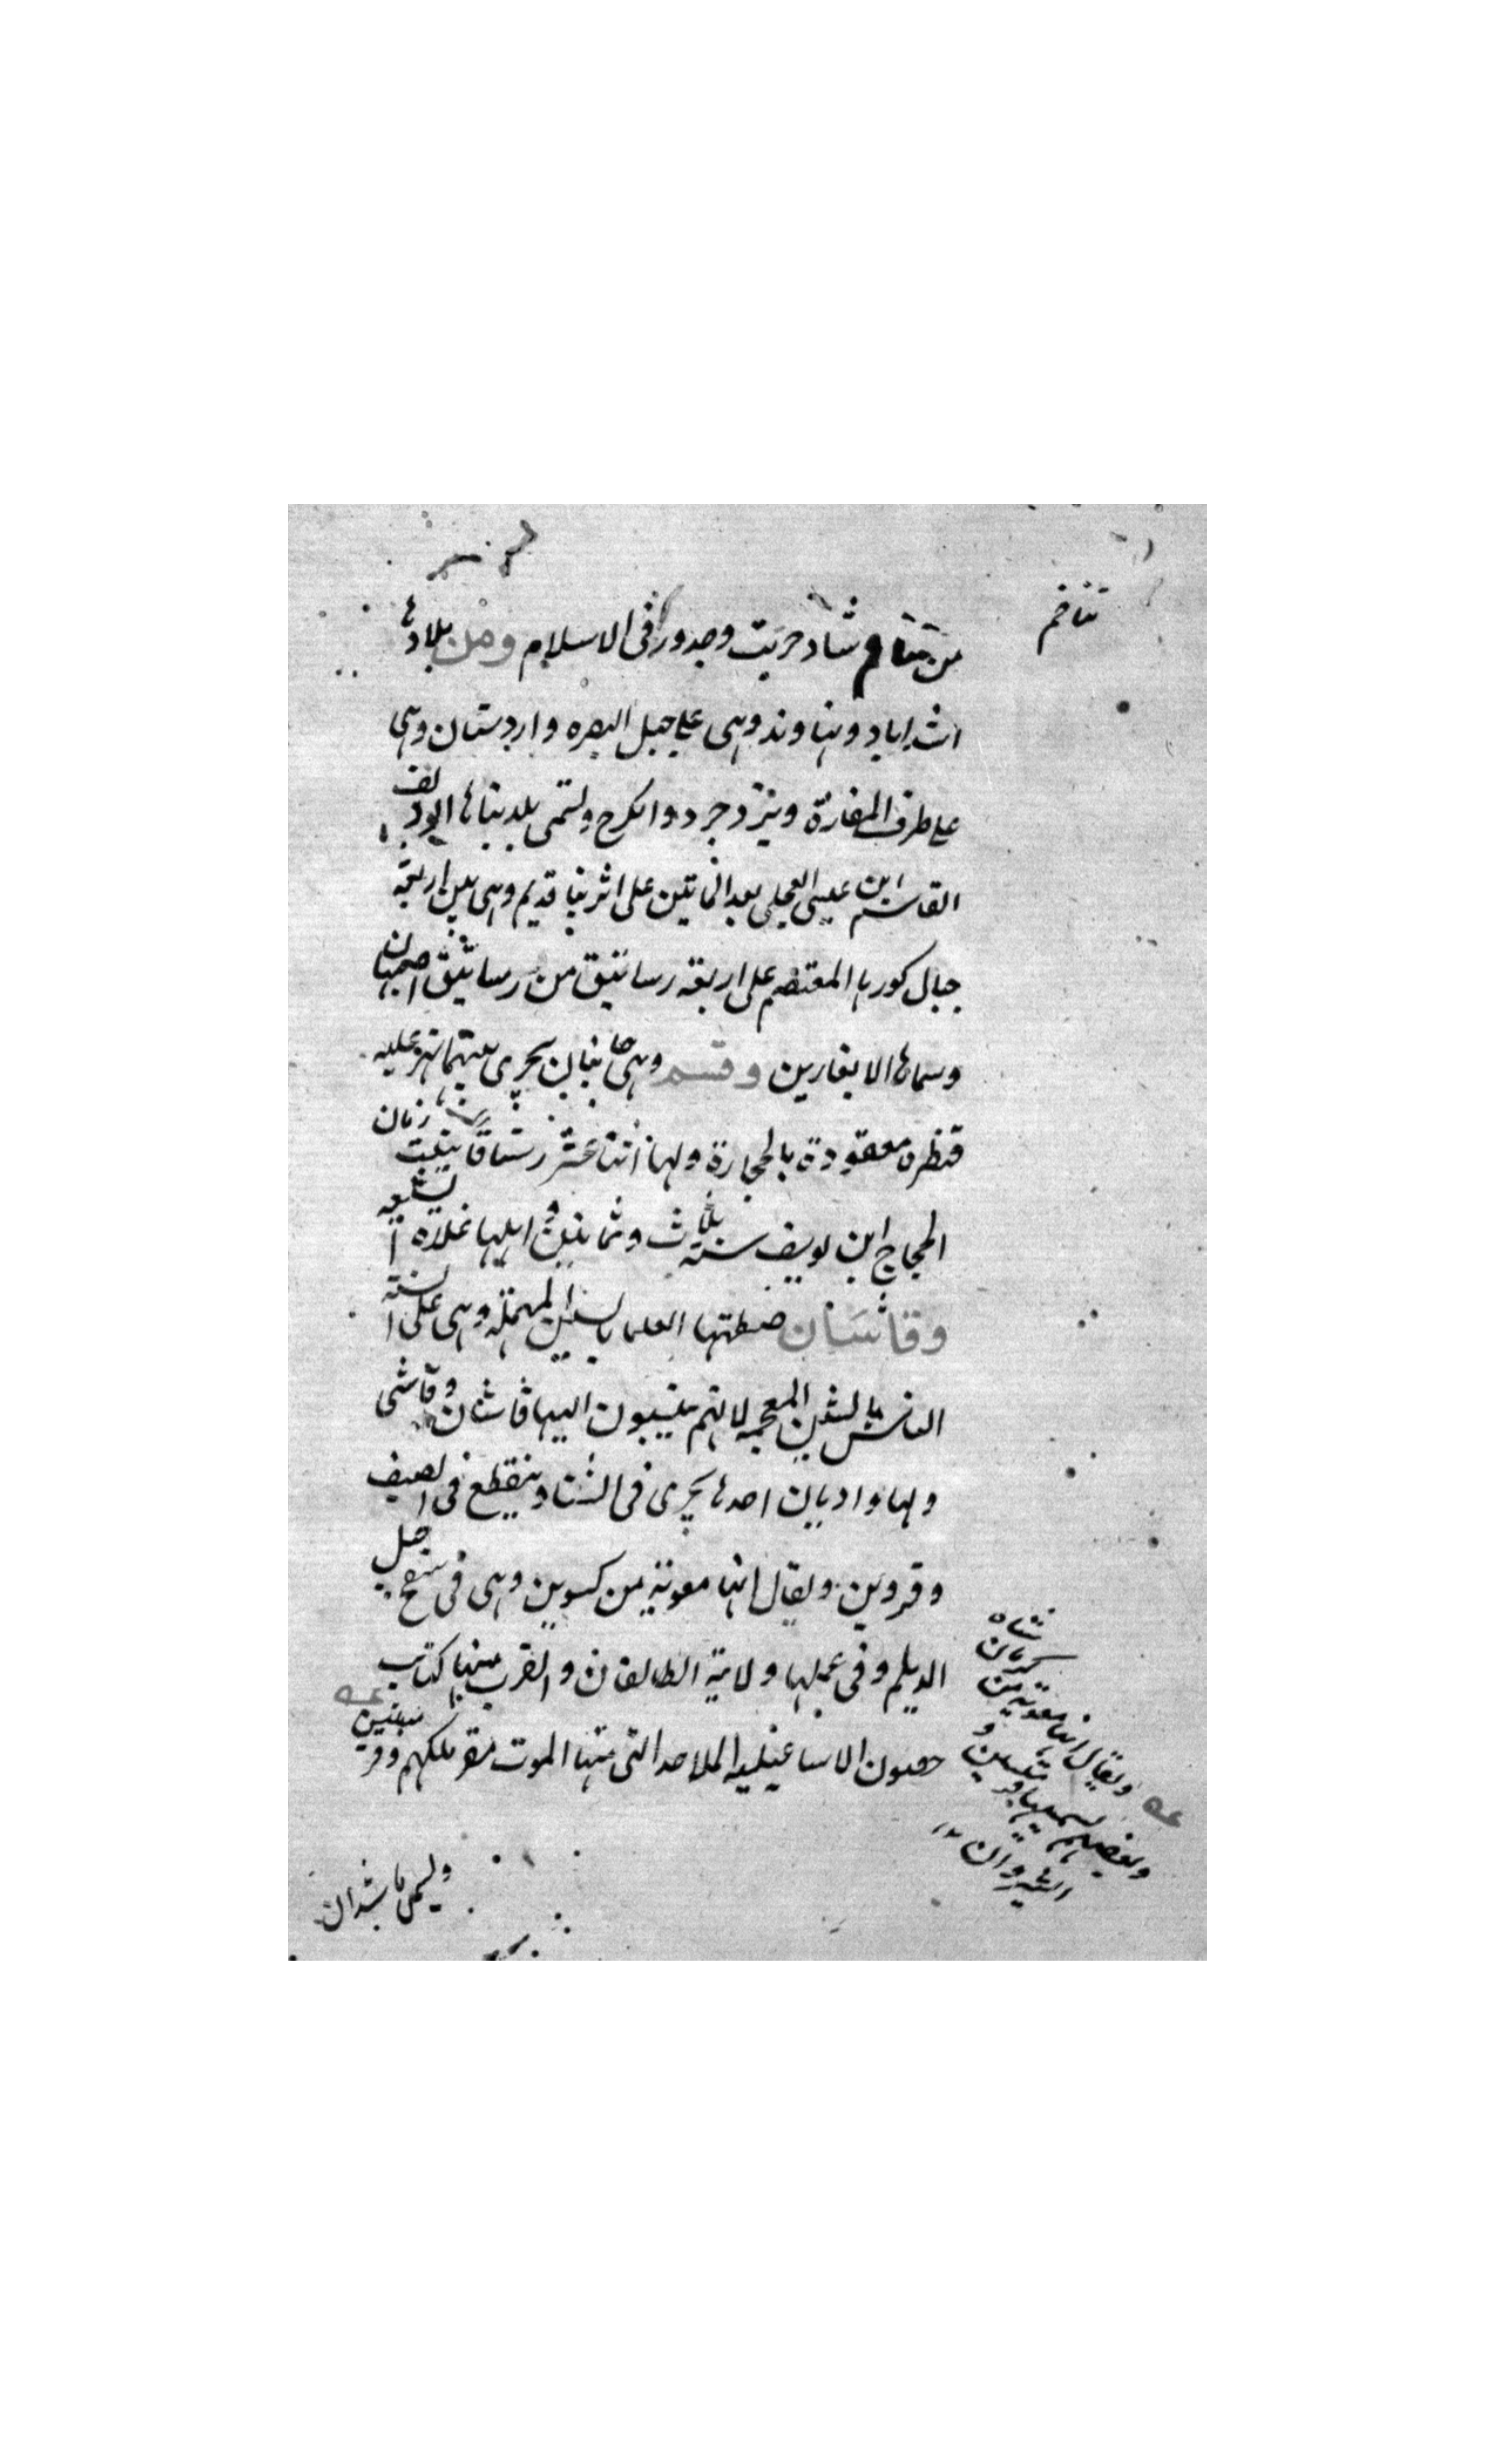 تتاخم
من تتاخم شاد خربت وجددوها فى الاسلام ومن بلادها
اسداباد ونهاوند وهى على جبل البصره واردستان وهى
على طرف المفازة ويزدجرد والكرج وتسمى بلد بناها ابو دلف
القاسم ابن عيسى العجلى بعد المايتين على اثر بنا قديم وهى بين اربعة
جبال كورها المعتصم على اربعه رساتيق من رساتيق اصبهان
وسماها الايغارين وقم وهى جانبان يجرى بينهما نهر عليه
قنطرة معقودة بالحجارة ولها اثنتا عشر رستاقا بنيت زمان
الحجاج ابن يوسف سنة ثلاث وثمانين واهلها غلاه الشيعه
وقاشان ضبطتها العلما بالسين المهمله وهى على السنة
الناس بالشين المعجمه لانهم ينسبون اليها قاشان وقاشى
ولها واديان احدها يجرى فى الشتا وينقطع فى الصيف
وقزوين ويقال انها معربة من كسوين وهى فى سفح جبل
الديلم وفى عملها ولاية الطالقان وبالقرب منها كتاب
حصون الاسماعيليه الملاحده التى منها الموت مقر ملكهم وقرميسين
ويقال انها معربة من
وبعضهم يسميها
ويسمى ماسبذان